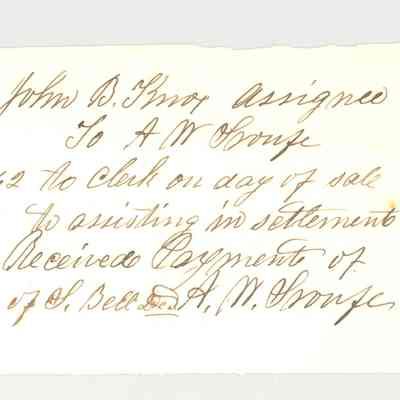 John B. Knox assignee
To A W Sroufe
62 to clerk on day of sale
to assisting in settlement
Received Payment of
of S. Bell A. W. Sroufe